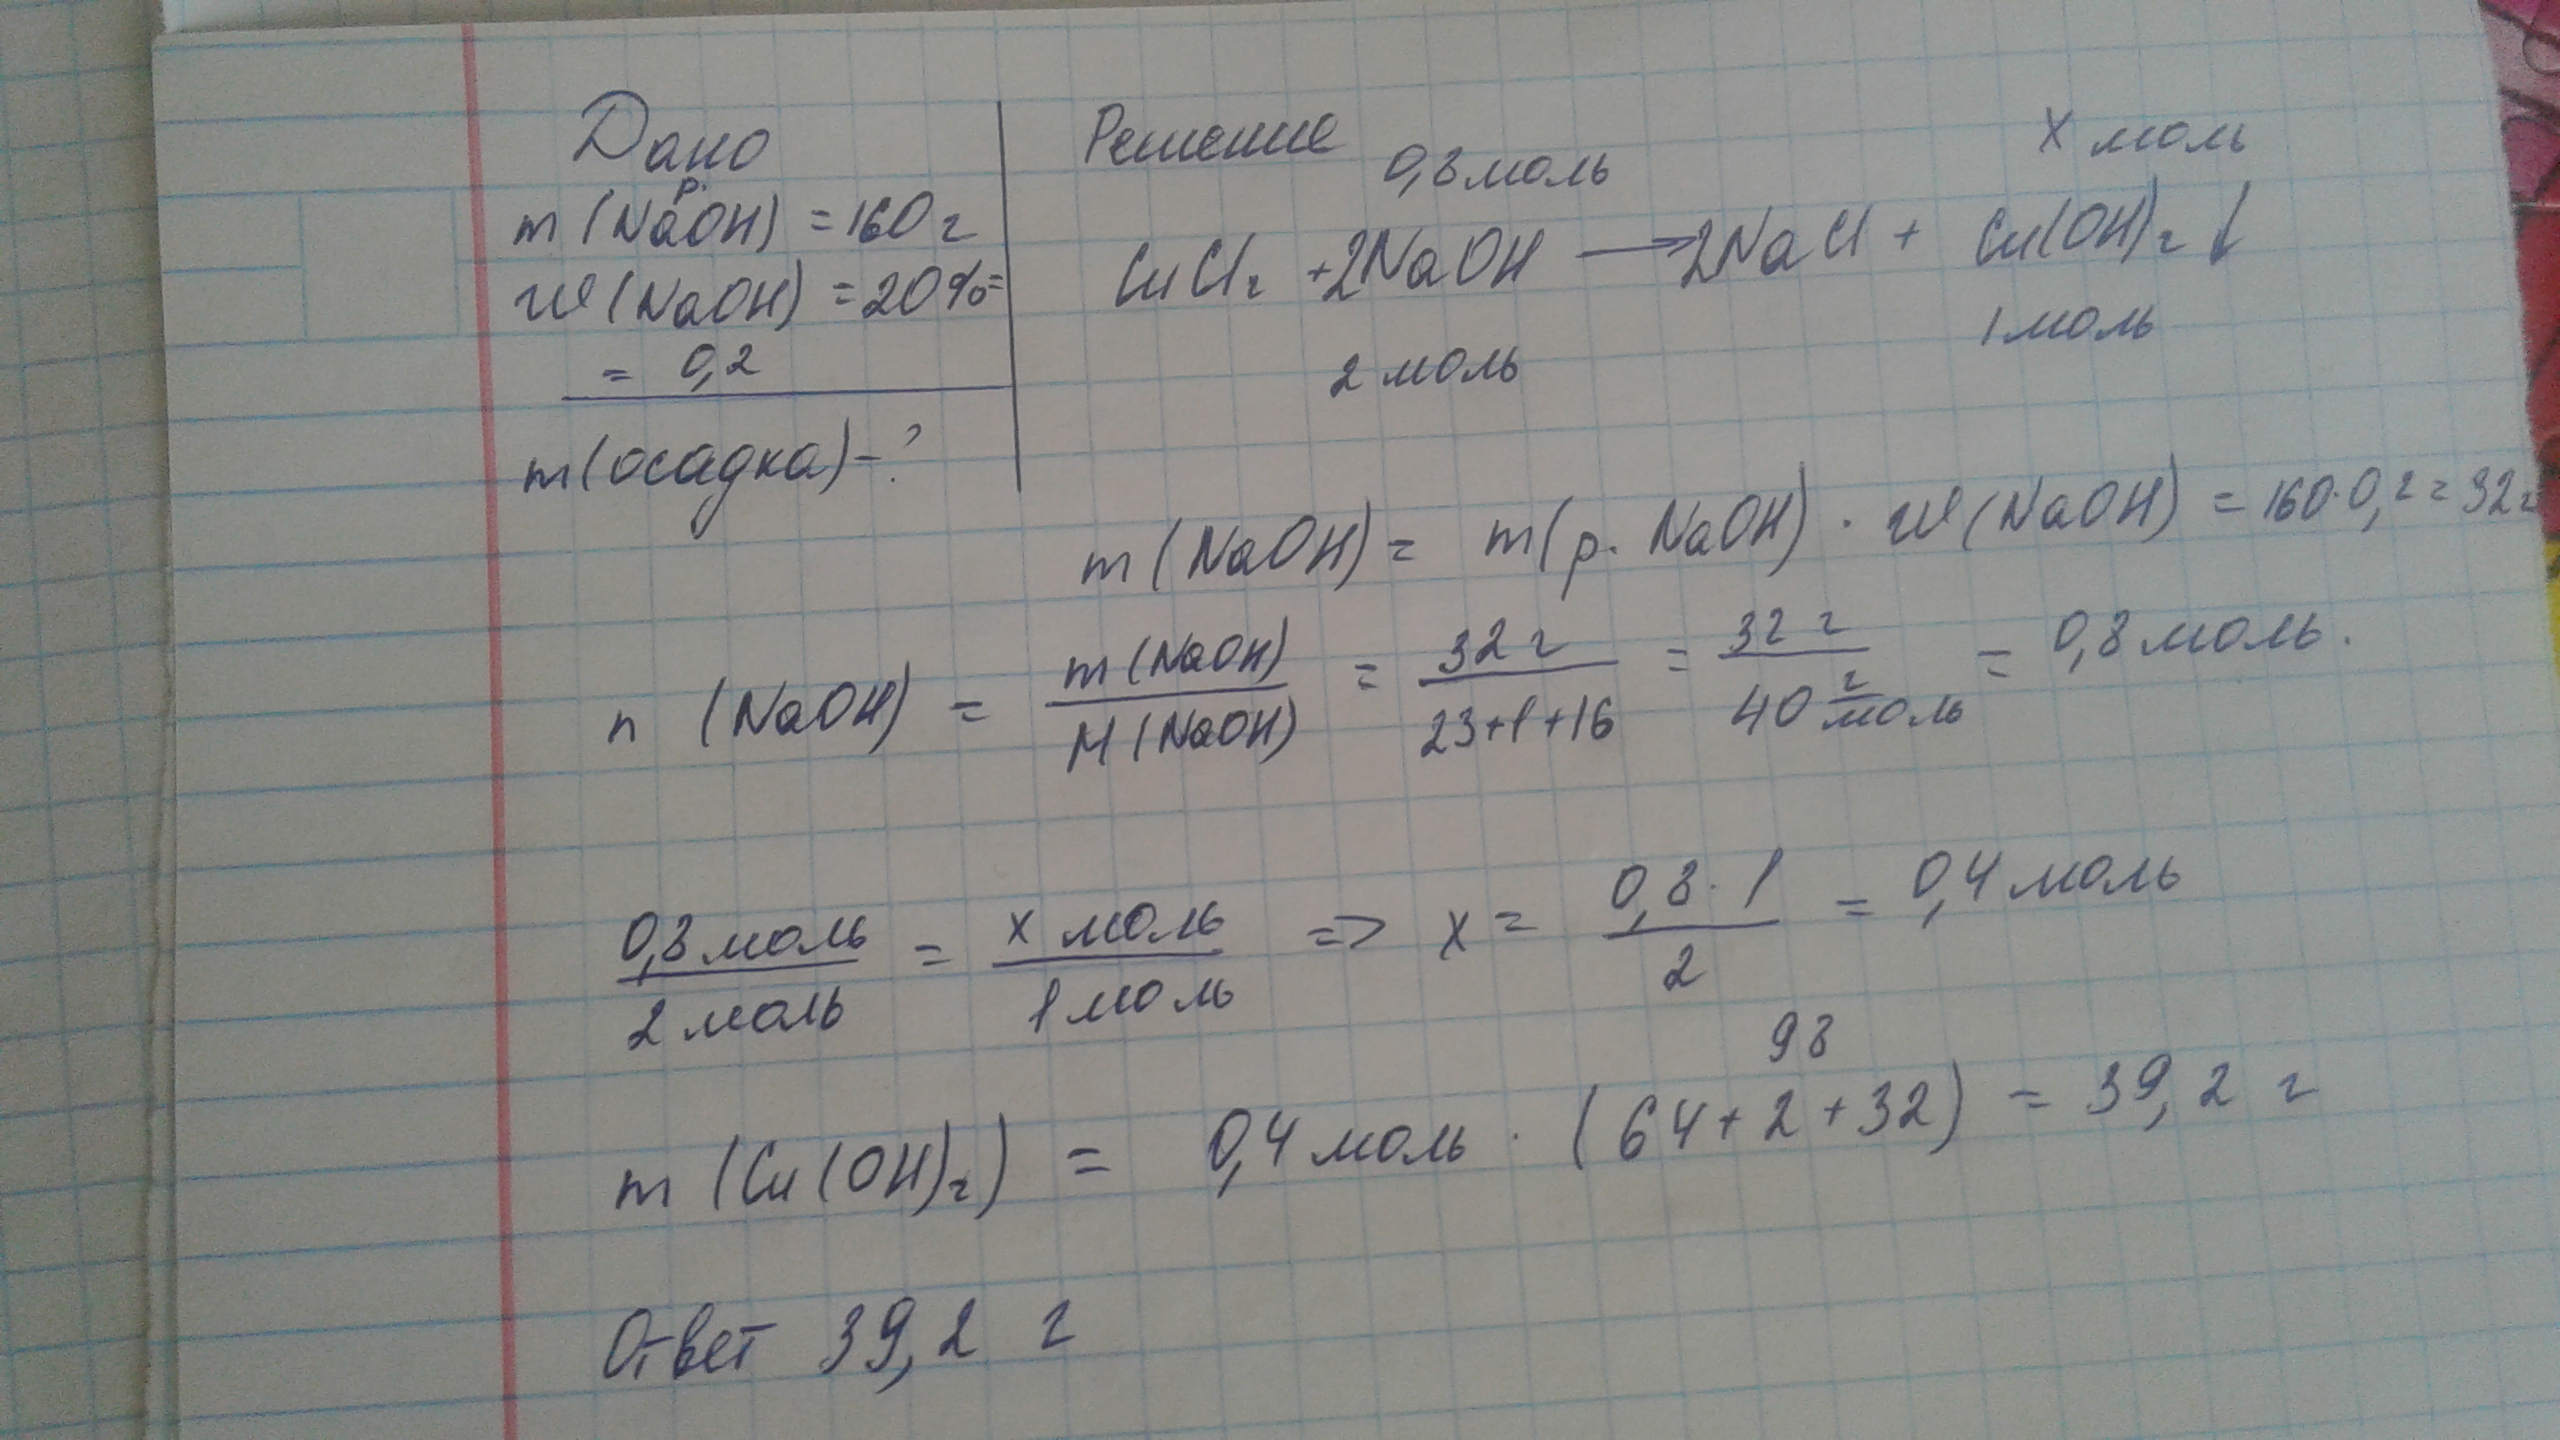 Дано
m(р. NaOH) = 160 г
w(NaOH) = 20% =
= 0,2
m(осадка) - ?
Решение
0,8 моль x моль
CuCl₂ + 2NaOH ⟶ 2NaCl + Cu(OH)₂ ↓
2 моль 1 моль
m(NaOH) = m(р. NaOH) · w(NaOH) = 160·0,2 = 32 г
n (NaOH) = m(NaOH)/M(NaOH) = 32 г/23+1+16 = 32 г/40 г/моль = 0,8 моль.
0,8 моль/2 моль = x моль/1 моль => x = 0,8·1/2 = 0,4 моль
98
m (Cu(OH)₂) = 0,4 моль · (64+2+32) = 39,2 г
Ответ 39,2 г